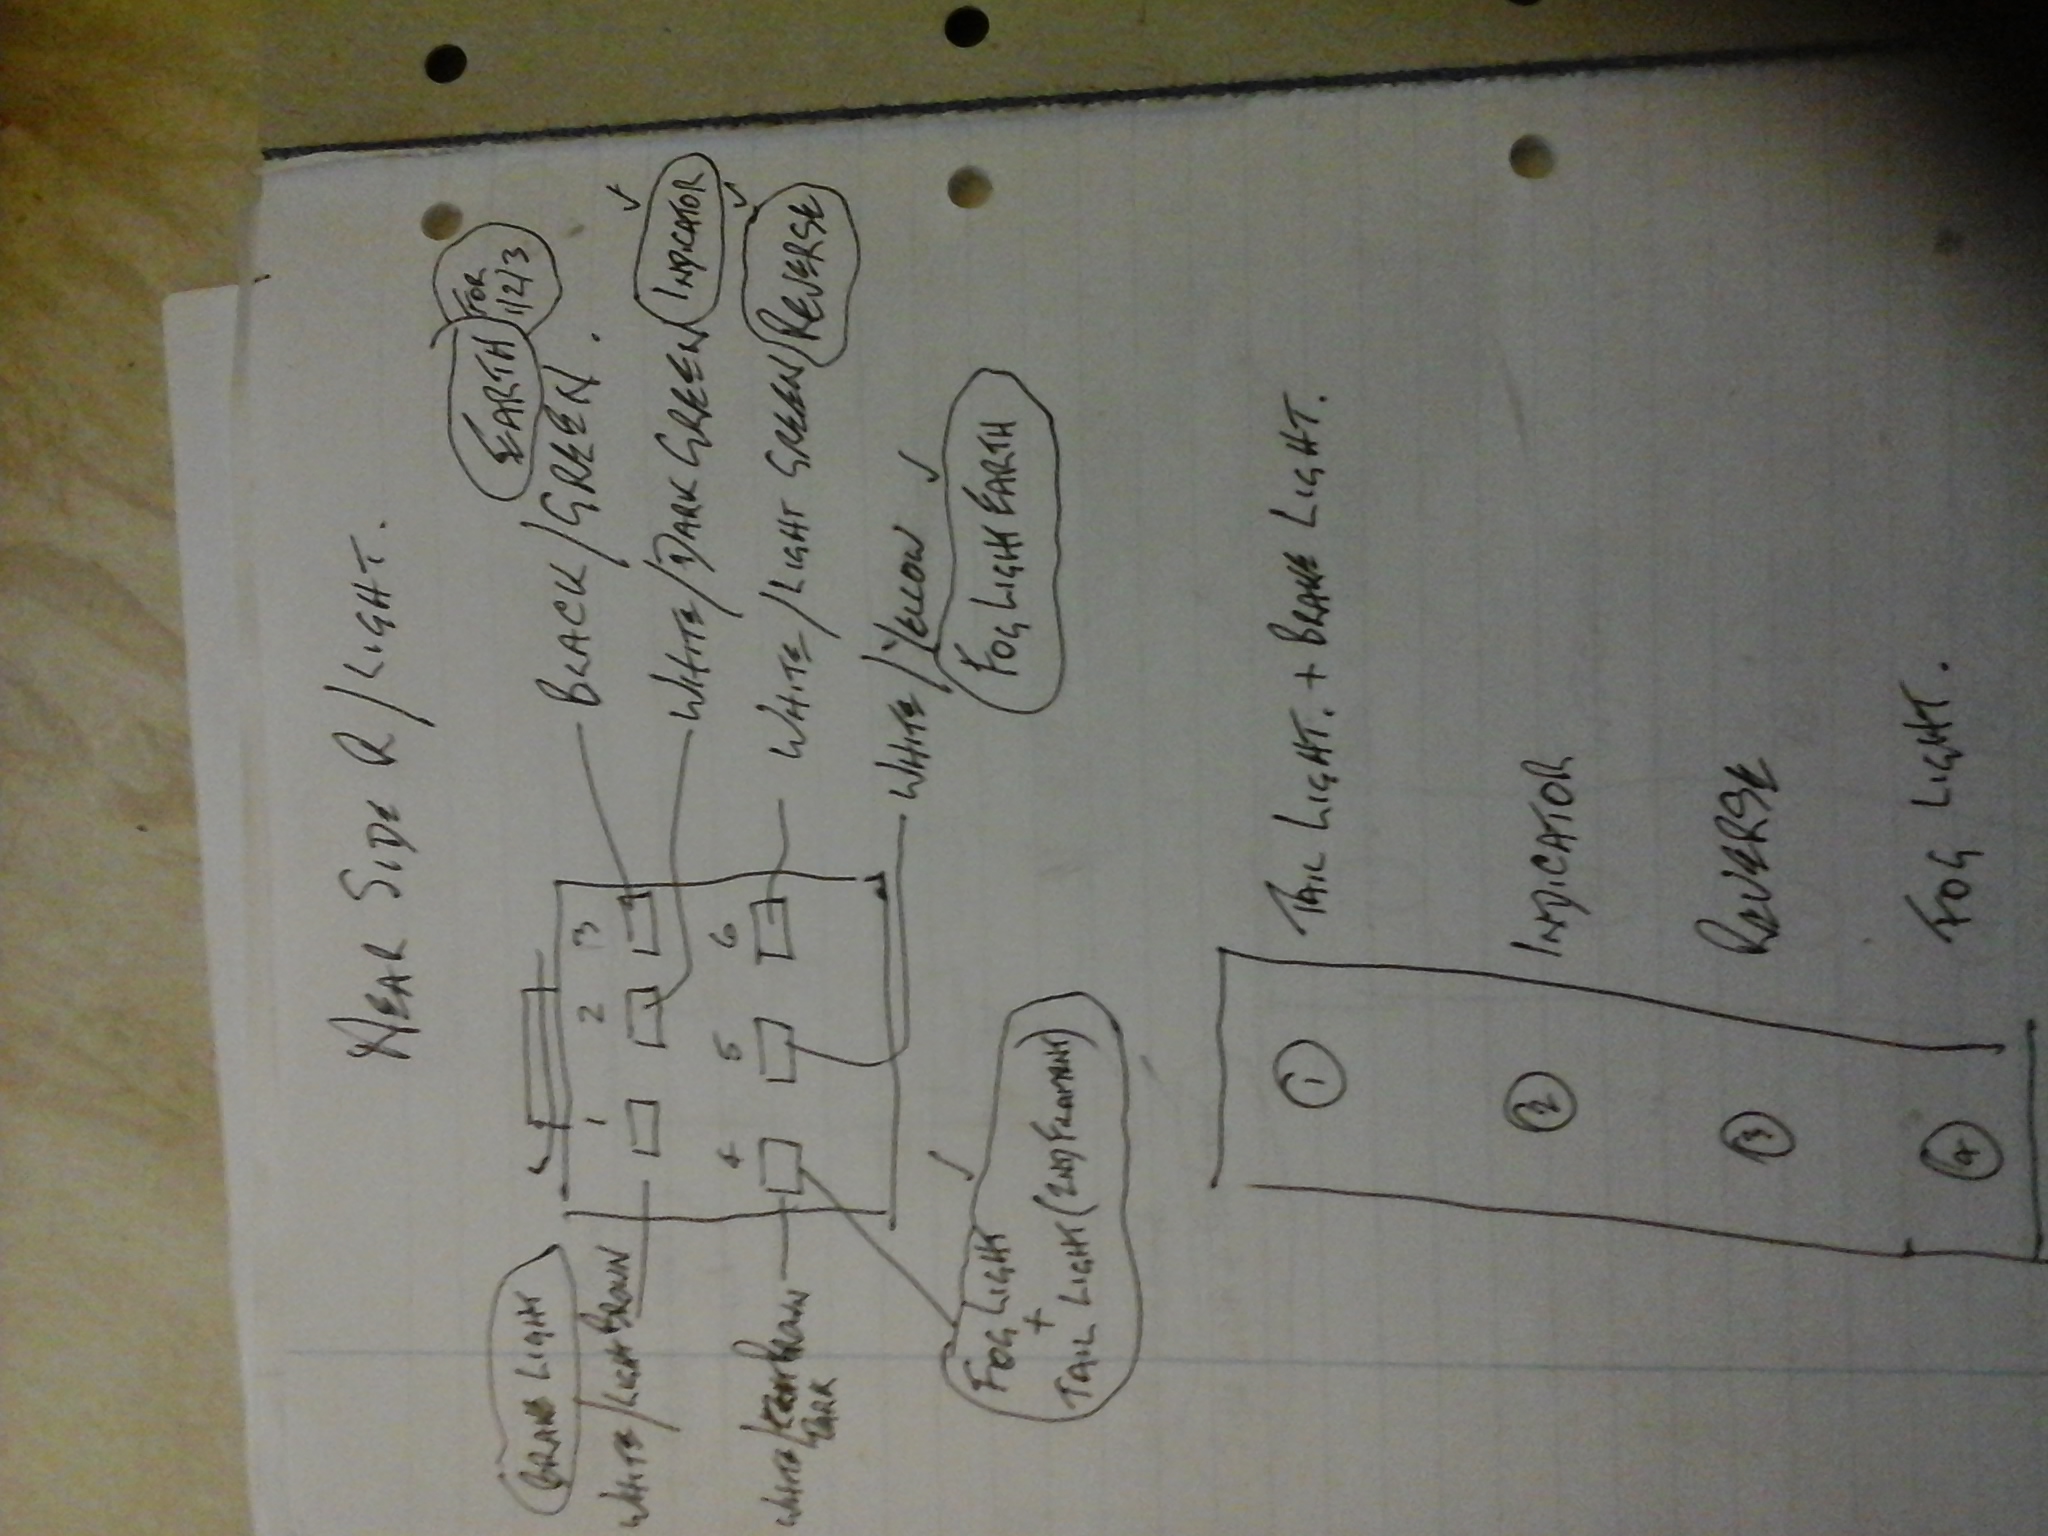 NEAR SIDE R/LIGHT.
EARTH FOR 1/2/3
BLACK/GREEN.
BRAKE LIGHT
WHITE/LIGHT BROWN
1 2 3
WHITE/DARK GREEN INDICATOR
4 5 6
WHITE/LIGHT GREEN REVERSE
WHITE/ BROWN
DARK
WHITE/YELLOW
FOG LIGHT EARTH
FOG LIGHT
+
TAIL LIGHT (2ND FILAMENT)
1 TAIL LIGHT. + BRAKE LIGHT.
2 INDICATOR
3 REVERSE
4 FOG LIGHT.